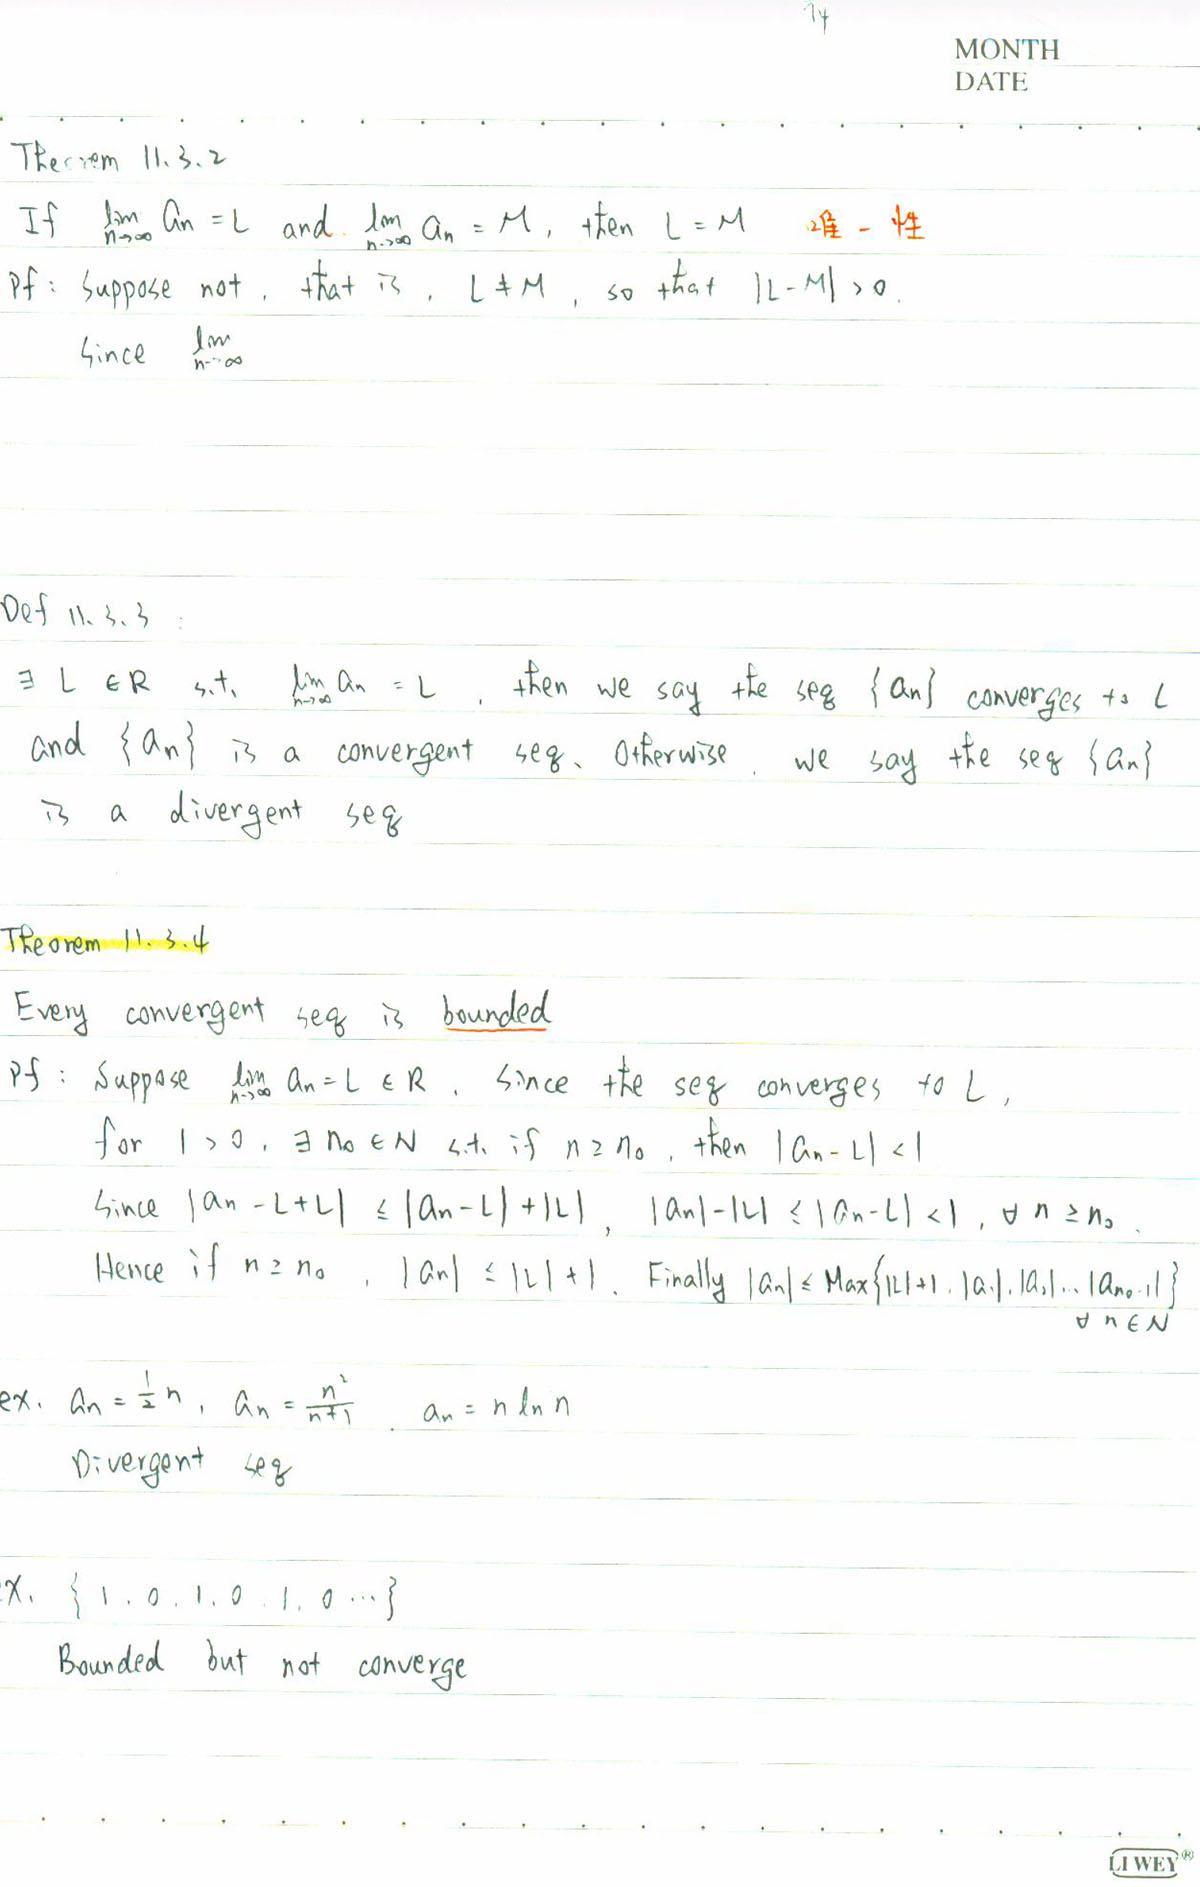 74
MONTH
DATE
Theorem 11.3.2
If lim n→∞ an = L and lim n→∞ an = M, then L = M 唯一性
Pf : Suppose not, that is, L ≠ M, so that |L - M| > 0.
Since lim n→∞
Def 11.3.3 :
∃ L ∈ R s.t. lim n→∞ an = L, then we say the seq {an} converges to L
and {an} is a convergent seq. Otherwise, we say the seq {an}
is a divergent seq
Theorem 11.3.4
Every convergent seq is bounded
Pf : Suppose lim n→∞ an = L ∈ R. Since the seq converges to L,
for 1 > 0, ∃ n₀ ∈ N s.t. if n ≥ n₀, then |an - L| < 1
Since |an - L + L| ≤ |an - L| + |L|, |an| - |L| ≤ |an - L| < 1, ∀ n ≥ n₀.
Hence if n ≥ n₀, |an| ≤ |L| + 1. Finally |an| ≤ Max{|L|+1, |a₁|, |a₂|... |an₀-1|}
∀ n ∈ N
ex. an = 1/2 n, an = n²/(n+1), an = n ln n
Divergent seq
x. {1, 0, 1, 0, 1, 0 ...}
Bounded but not converge
LI WEY®